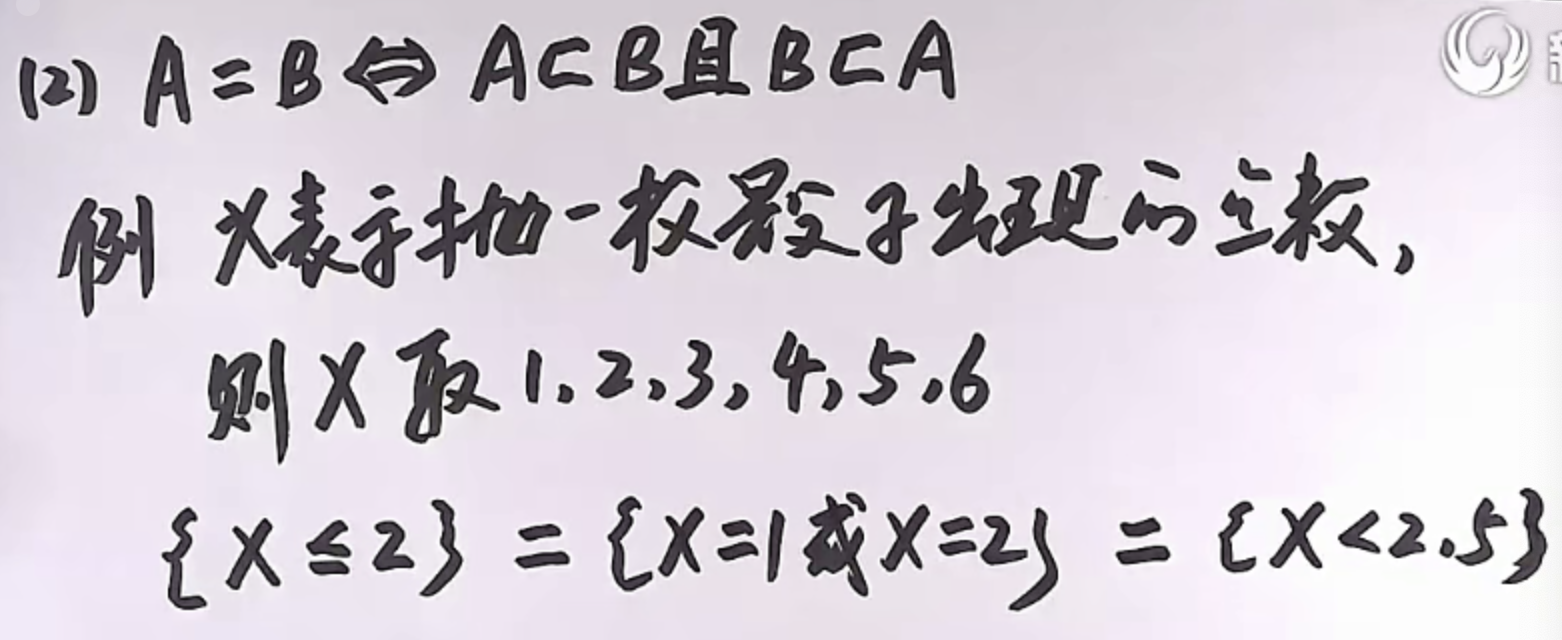 (2) A = B ⇔ A⊂B且B⊂A
例 X表示抛一枚骰子出现的点数,
则X取1,2,3,4,5,6
{X≤2} = {X=1或X=2} = {X<2.5}